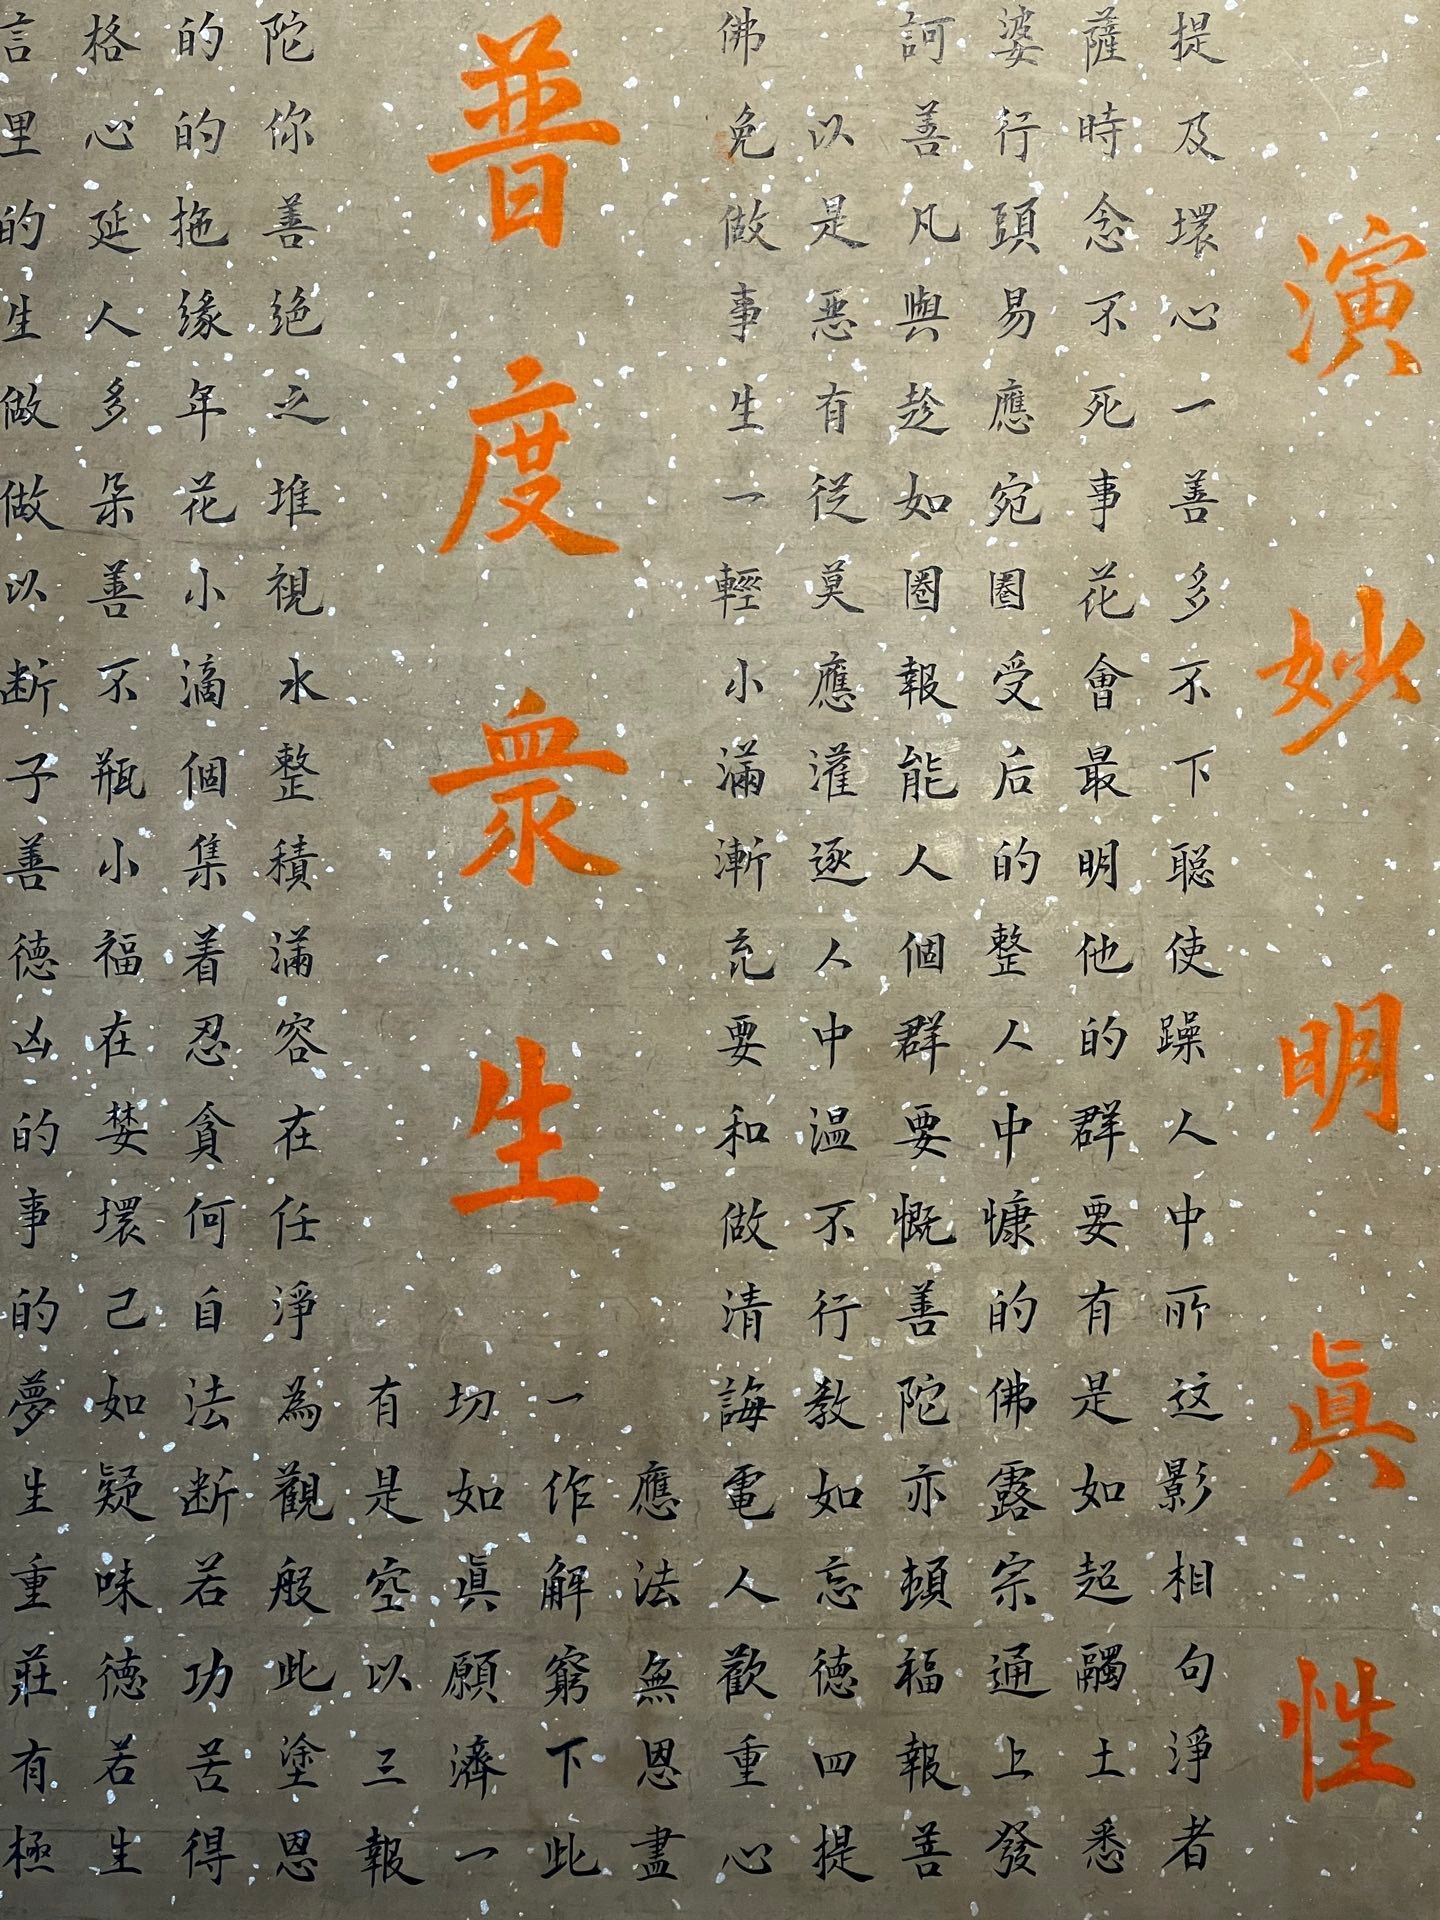 演妙明眞性
提及壞心一善多不下聪使躁人中所这影相句淨者
薩時念不死事花會最明他的群要有是如超土悉
婆行頭易應宛圈受后的整人中慷的佛露宗通上發
訶善凡與趁如圈報能人個群要慨善陀亦頓福報善
以是惡有從莫應灌逐人中温不行教如忘德四提
佛免做事生一輕小滿漸充要和做清誨電人歡重心
應法無恩盡
一作解窮下此
普度衆生
切如眞願濟一
有是空以三報
陀你善绝之堆視水整積滿容在任淨為觀般此塗恩
的的拖缘年花小滴個集着忍貪何自法断若功苦得
格心延人多朵善不瓶小福在婪壞己如疑味德若生
言里的生做做以断子善德凶的事的夢生重莊有極